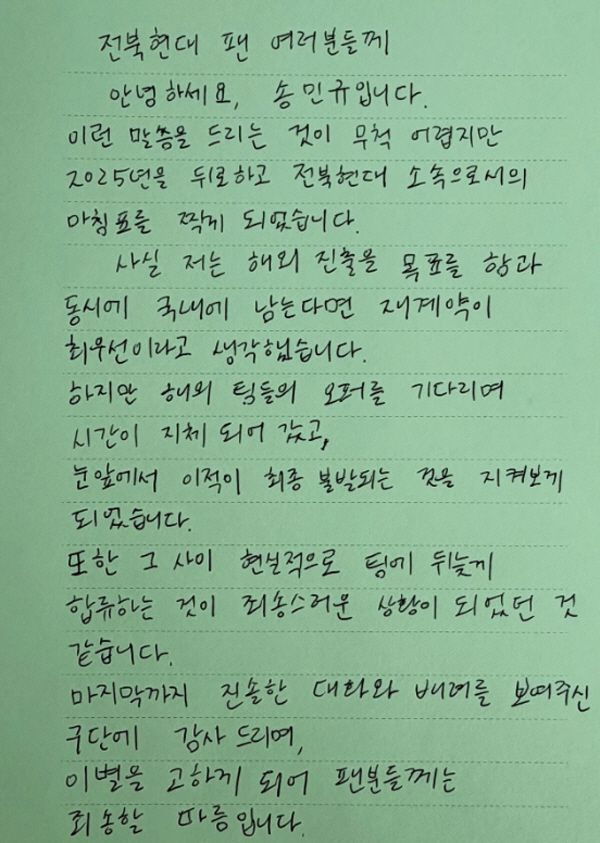 전북현대 팬 여러분들께
안녕하세요, 송민규입니다.
이런 말씀을 드리는 것이 무척 어렵지만
2025년을 뒤로하고 전북현대 소속으로서의
마침표를 찍게 되었습니다.
사실 저는 해외 진출을 목표를 함과
동시에 국내에 남는다면 재계약이
최우선이라고 생각했습니다.
하지만 해외 팀들의 오퍼를 기다리며
시간이 지체 되어 갔고,
눈앞에서 이적이 최종 불발되는 것을 지켜보게
되었습니다.
또한 그 사이 현실적으로 팀에 뒤늦게
합류하는 것이 죄송스러운 상황이 되었던 것
같습니다.
마지막까지 진솔한 대화와 배려를 보여주신
구단에 감사 드리며,
이별을 고하게 되어 팬분들께는
죄송할 따름입니다.